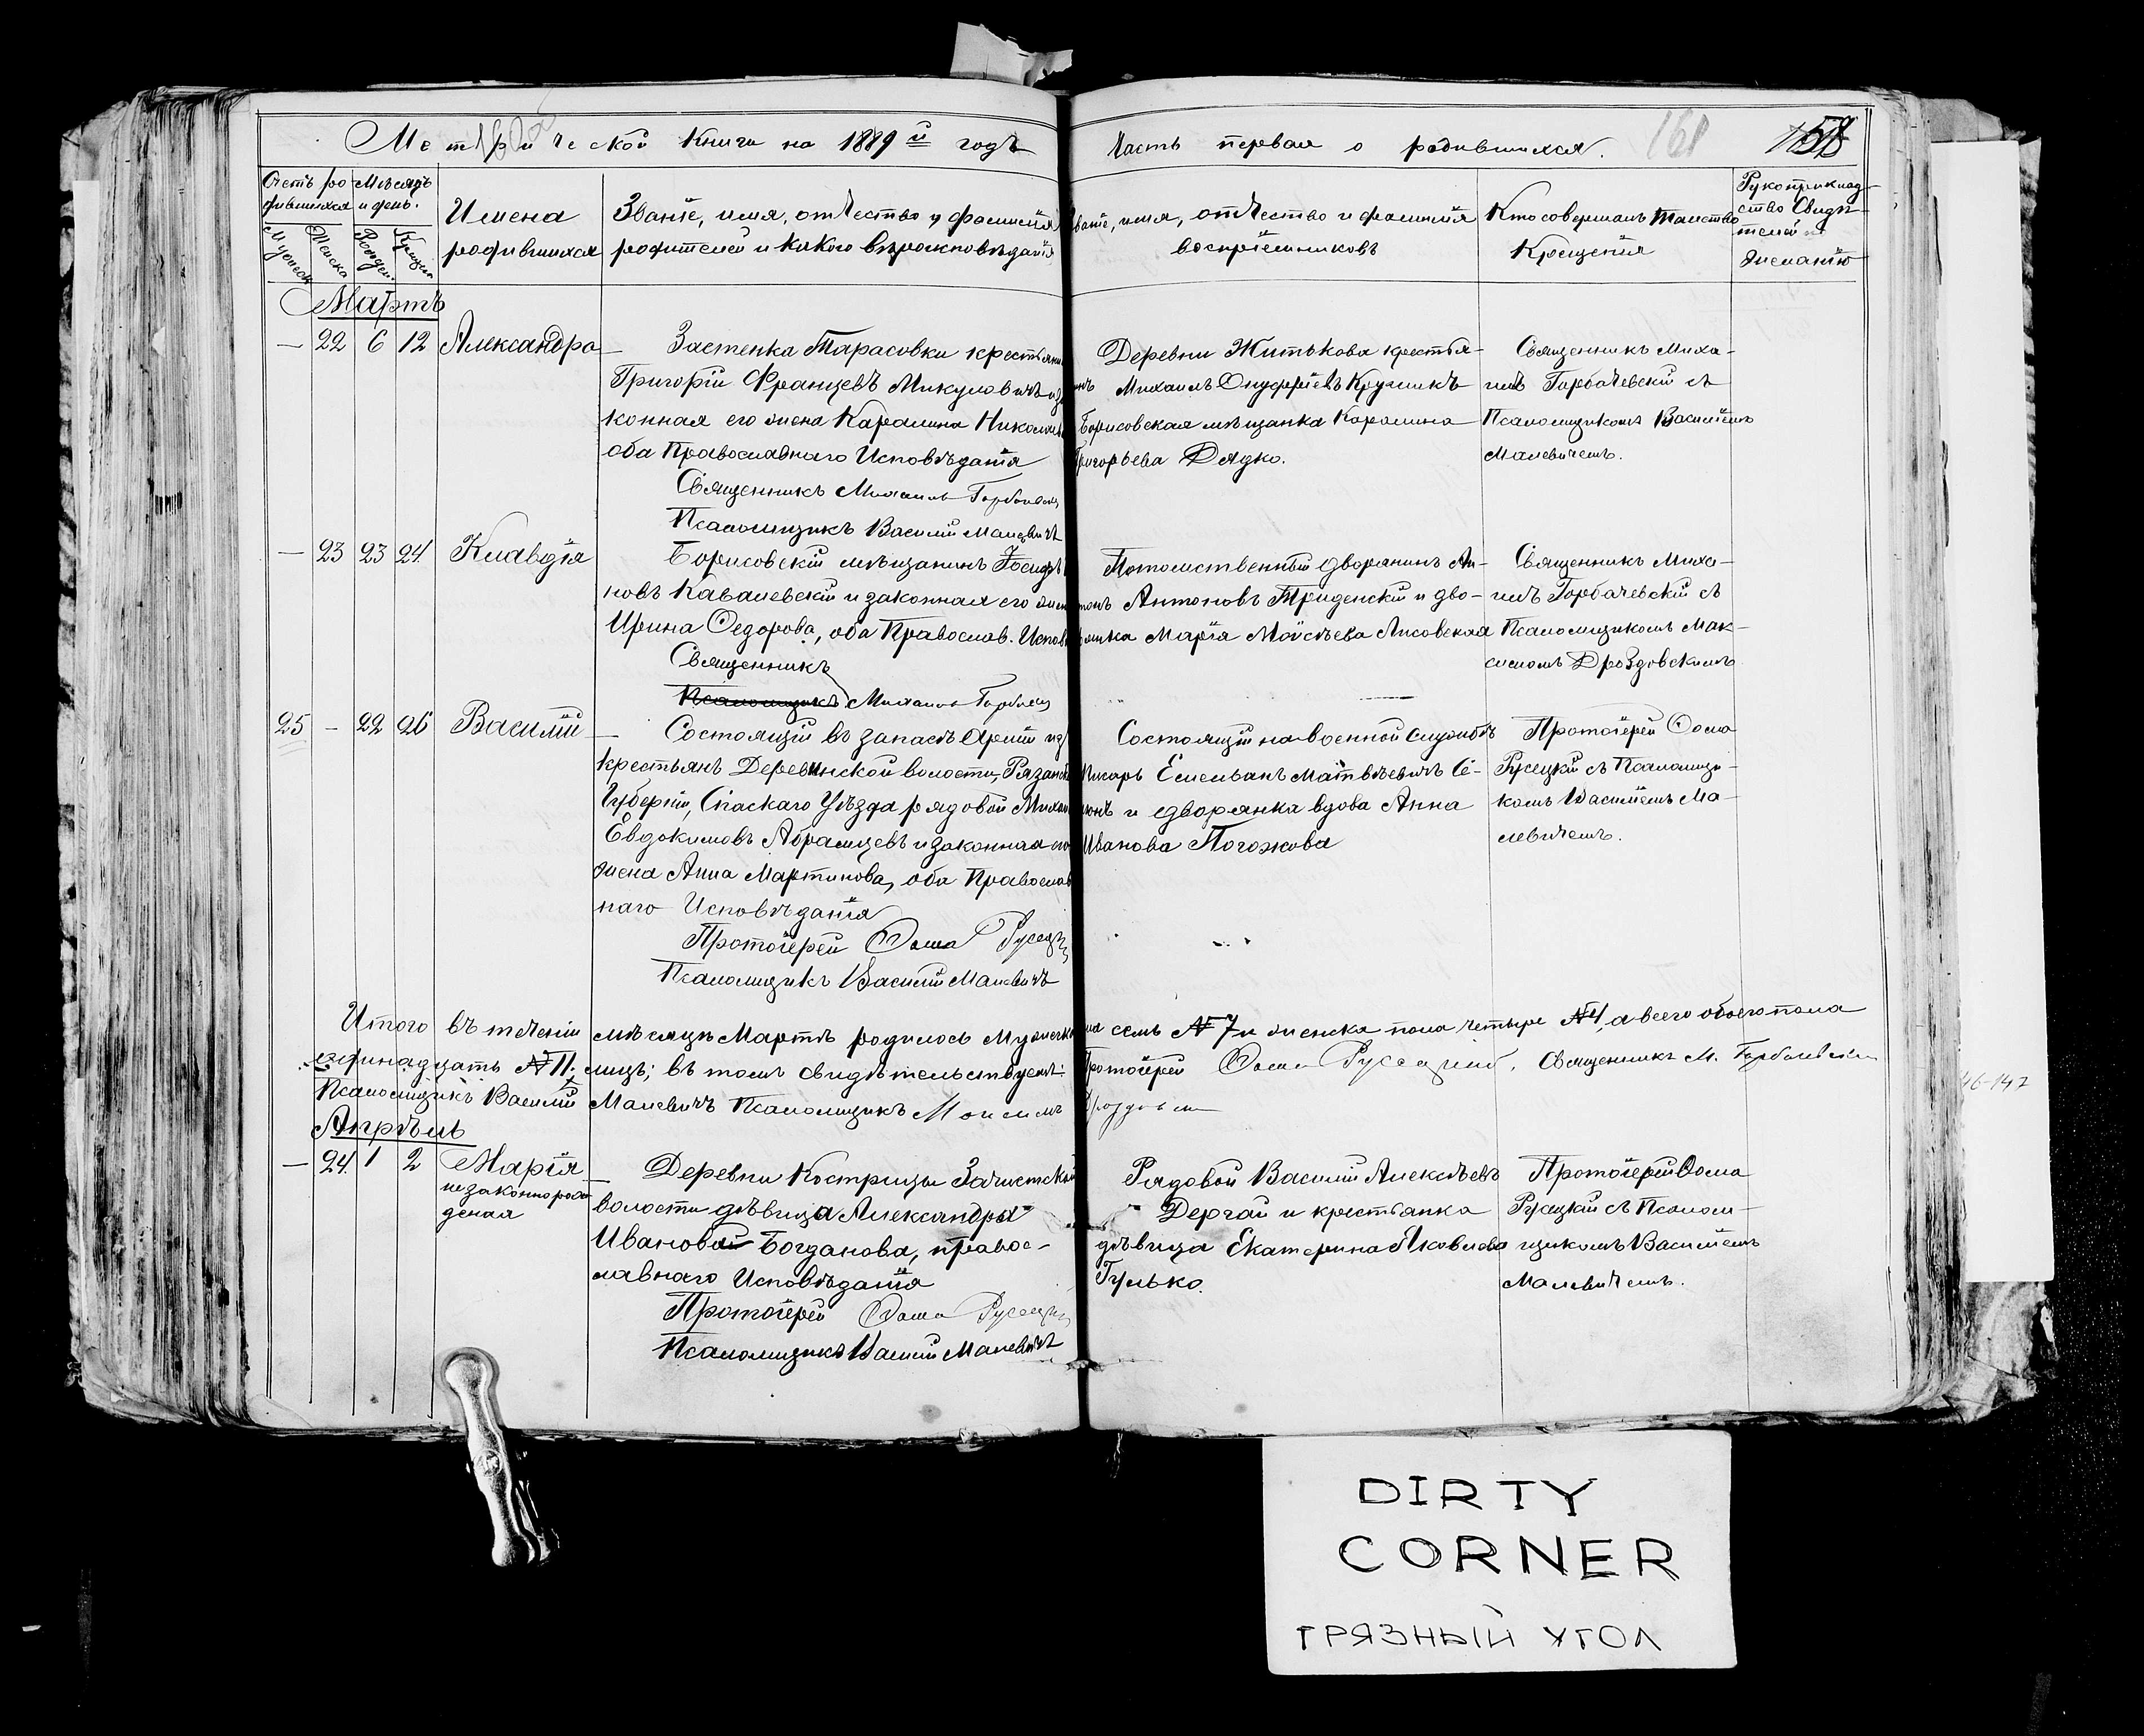 Метрической книги на 1889й годъ
Часть первая о родившихся.
161
158
Счетъ ро-
дившихся
Мѣсяцъ
и день.
Мужеск
Женска
Рожден
Крещен
Имена
родившихся
Званіе, имя, отчество и фамилія
родителей и какого вѣроисповѣданія
Званіе, имя, отчество и фамилія
воспріемниковъ
Кто совершалъ таинство
Крещенія
Рукоприклад-
ство свидѣ-
телей
желанію
Мартъ
— 22 6 12 Александра
Застенка Тарасовки крестьяни
Григорій Францевъ Микуловичъ и за
конная его жена Каралина Никола
оба Православнаго Исповѣданія
Священникъ Михаилъ Горбачевск
Псаломщикъ Василій Малевичъ
Деревни Житькова крестья-
нинъ Михаилъ Онуфріевъ Кружикъ
Борисовская мѣщанка Каролина
Григорьева Дядко.
Священникъ Миха-
илъ Горбачевскій съ
Псаломщикомъ Василіемъ
Малевичемъ.
— 23 23 24 Клавдія
Борисовскій мѣщанинъ Іосифъ
новъ Кавалевскій и законная его жен
Ирина Ѳедорова, оба Православ. Исповѣ
Священникъ
Псаломщикъ Михаилъ Горбачев
Потомственный дворянинъ Ан-
тонъ Антоновъ Триденскій и дво-
рянка Марія Моѵсѣева Лисовская
Священникъ Миха-
илъ Горбачевскій съ
Псаломщикомъ Мак-
симомъ Дроздовскимъ
25 — 22 26 Василій
Состоящій въ запасѣ Арміи из
крестьянъ Деревинской волости, Рязанск
Губерніи, Спаскаго Уѣзда рядовой Михаи
Евдокимовъ Абрамцевъ и законная его
жена Анна Мартинова, оба Православ
наго Исповѣданія
Протоіерей Ѳома Русецк
Псаломщикъ Василій Малевичъ
Состоящій на военной службѣ
Писарь Емельянъ Матвѣевичъ Се-
нюкъ и дворянка вдова Анна
Иванова Погожова
Протоіерей Ѳома
Русецкій съ Псаломщи-
комъ Василіемъ Ма-
левичемъ.
Итого въ теченіи мѣсяцѣ Мартѣ родилось Мужеска пола семь № 7 и женска пола четыре № 4, а всего обоего пола
одинадцать № 11 лицъ; въ томъ свидѣтельствуемъ: Протоіерей Ѳома Русецкій, Священникъ М. Горбачевскій
Псаломщикъ Василій Малевичъ Псаломщикъ Максимъ Дроздовскій
46-147
Апрѣль
— 24 1 2 Марія
незаконнорож
деная
Деревни Кострицы Зачистской
волости дѣвица Александра
Ивановай Богданова, правос-
лавнаго Исповѣданія
Протоіерей Ѳома Русецкі
Псаломщикъ Василій Малевичъ
Рядовой Василій Алексѣевъ
Дергай и крестьянка
дѣвица Екатерина Яковлева
Гулько.
Протоіерей Ѳома
Русецкій съ Псалом-
щикомъ Василіемъ
Малевичемъ.
DIRTY
CORNER
ГРЯЗНЫЙ УГОЛ